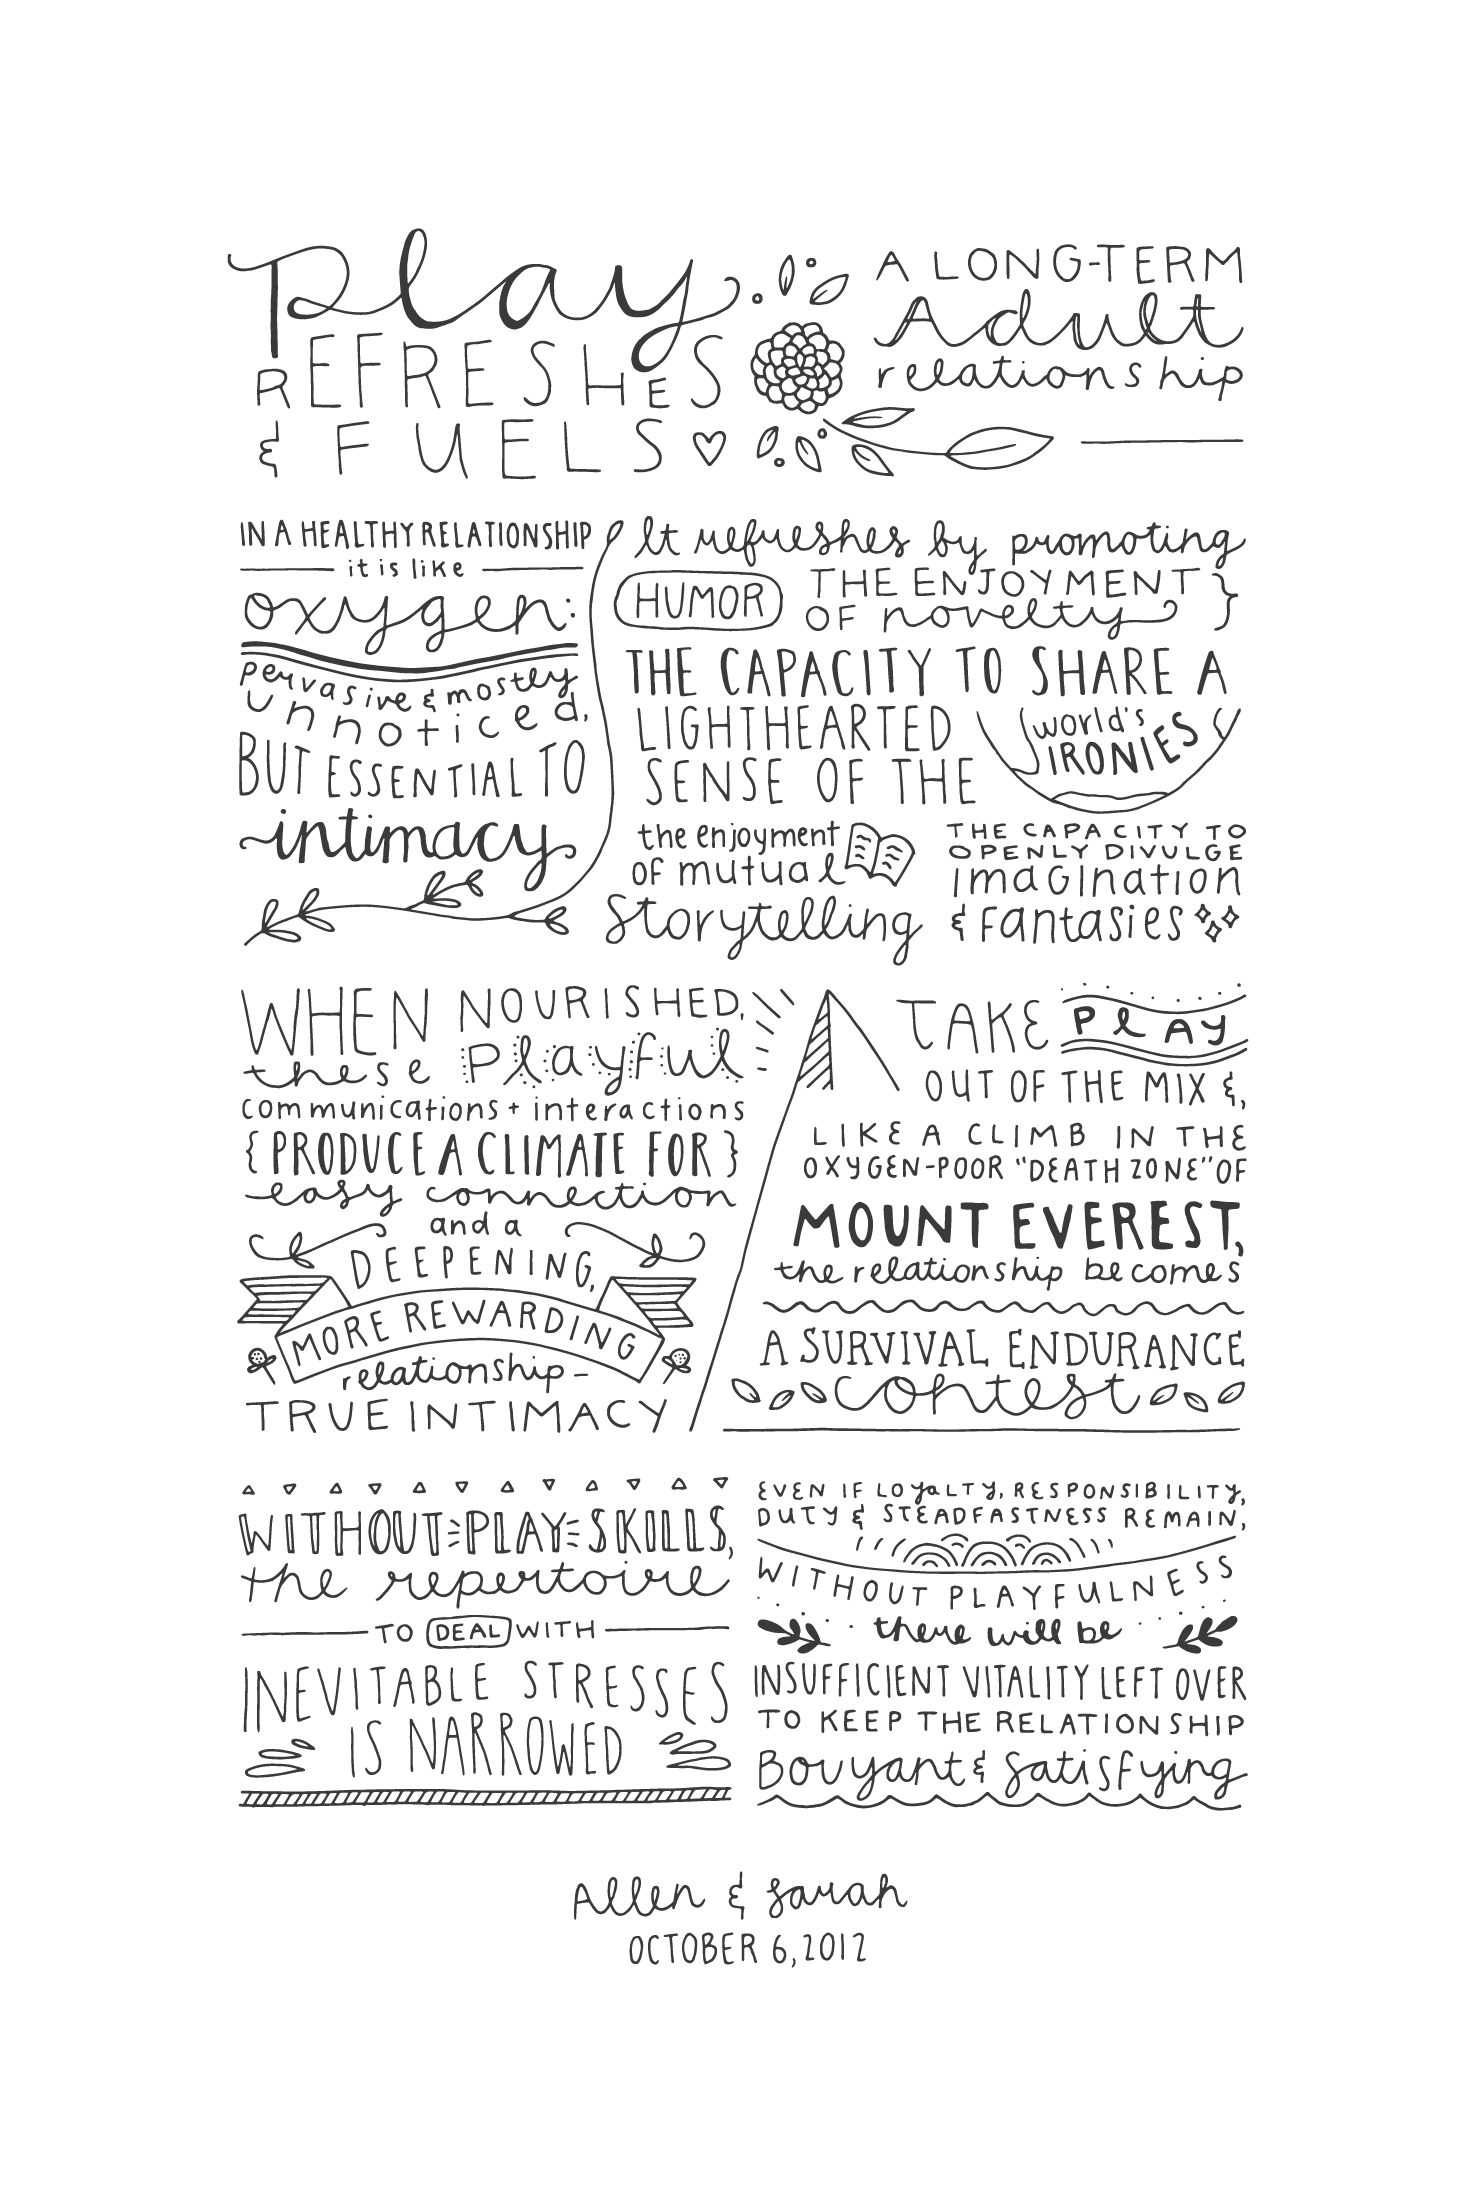 Play
REFRESHES
& FUELS
A LONG-TERM
Adult
relationship
IN A HEALTHY RELATIONSHIP
it is like
oxygen:
pervasive & mostly
unnoticed,
BUT ESSENTIAL TO
intimacy
It refreshes by promoting
HUMOR THE ENJOYMENT
OF novelty }
THE CAPACITY TO SHARE A
LIGHTHEARTED
SENSE OF THE
world's
IRONIES
the enjoyment
OF mutual
Storytelling
THE CAPACITY TO
OPENLY DIVULGE
imagination
& Fantasies
WHEN NOURISHED,
these playful
communications + interactions
{ PRODUCE A CLIMATE FOR }
easy connection
and a
DEEPENING,
MORE REWARDING
relationship -
TRUE INTIMACY
TAKE PLAY
OUT OF THE MIX &,
LIKE A CLIMB IN THE
OXYGEN-POOR "DEATH ZONE" OF
MOUNT EVEREST,
the relationship becomes
A SURVIVAL ENDURANCE
contest
WITHOUT PLAY SKILLS,
the repertoire
TO DEAL WITH
INEVITABLE STRESSES
IS NARROWED
EVEN IF LOYALTY, RESPONSIBILITY,
DUTY & STEADFASTNESS REMAIN,
WITHOUT PLAYFULNESS
there will be
INSUFFICIENT VITALITY LEFT OVER
TO KEEP THE RELATIONSHIP
Bouyant & Satisfying
Allen & Sarah
OCTOBER 6, 2012